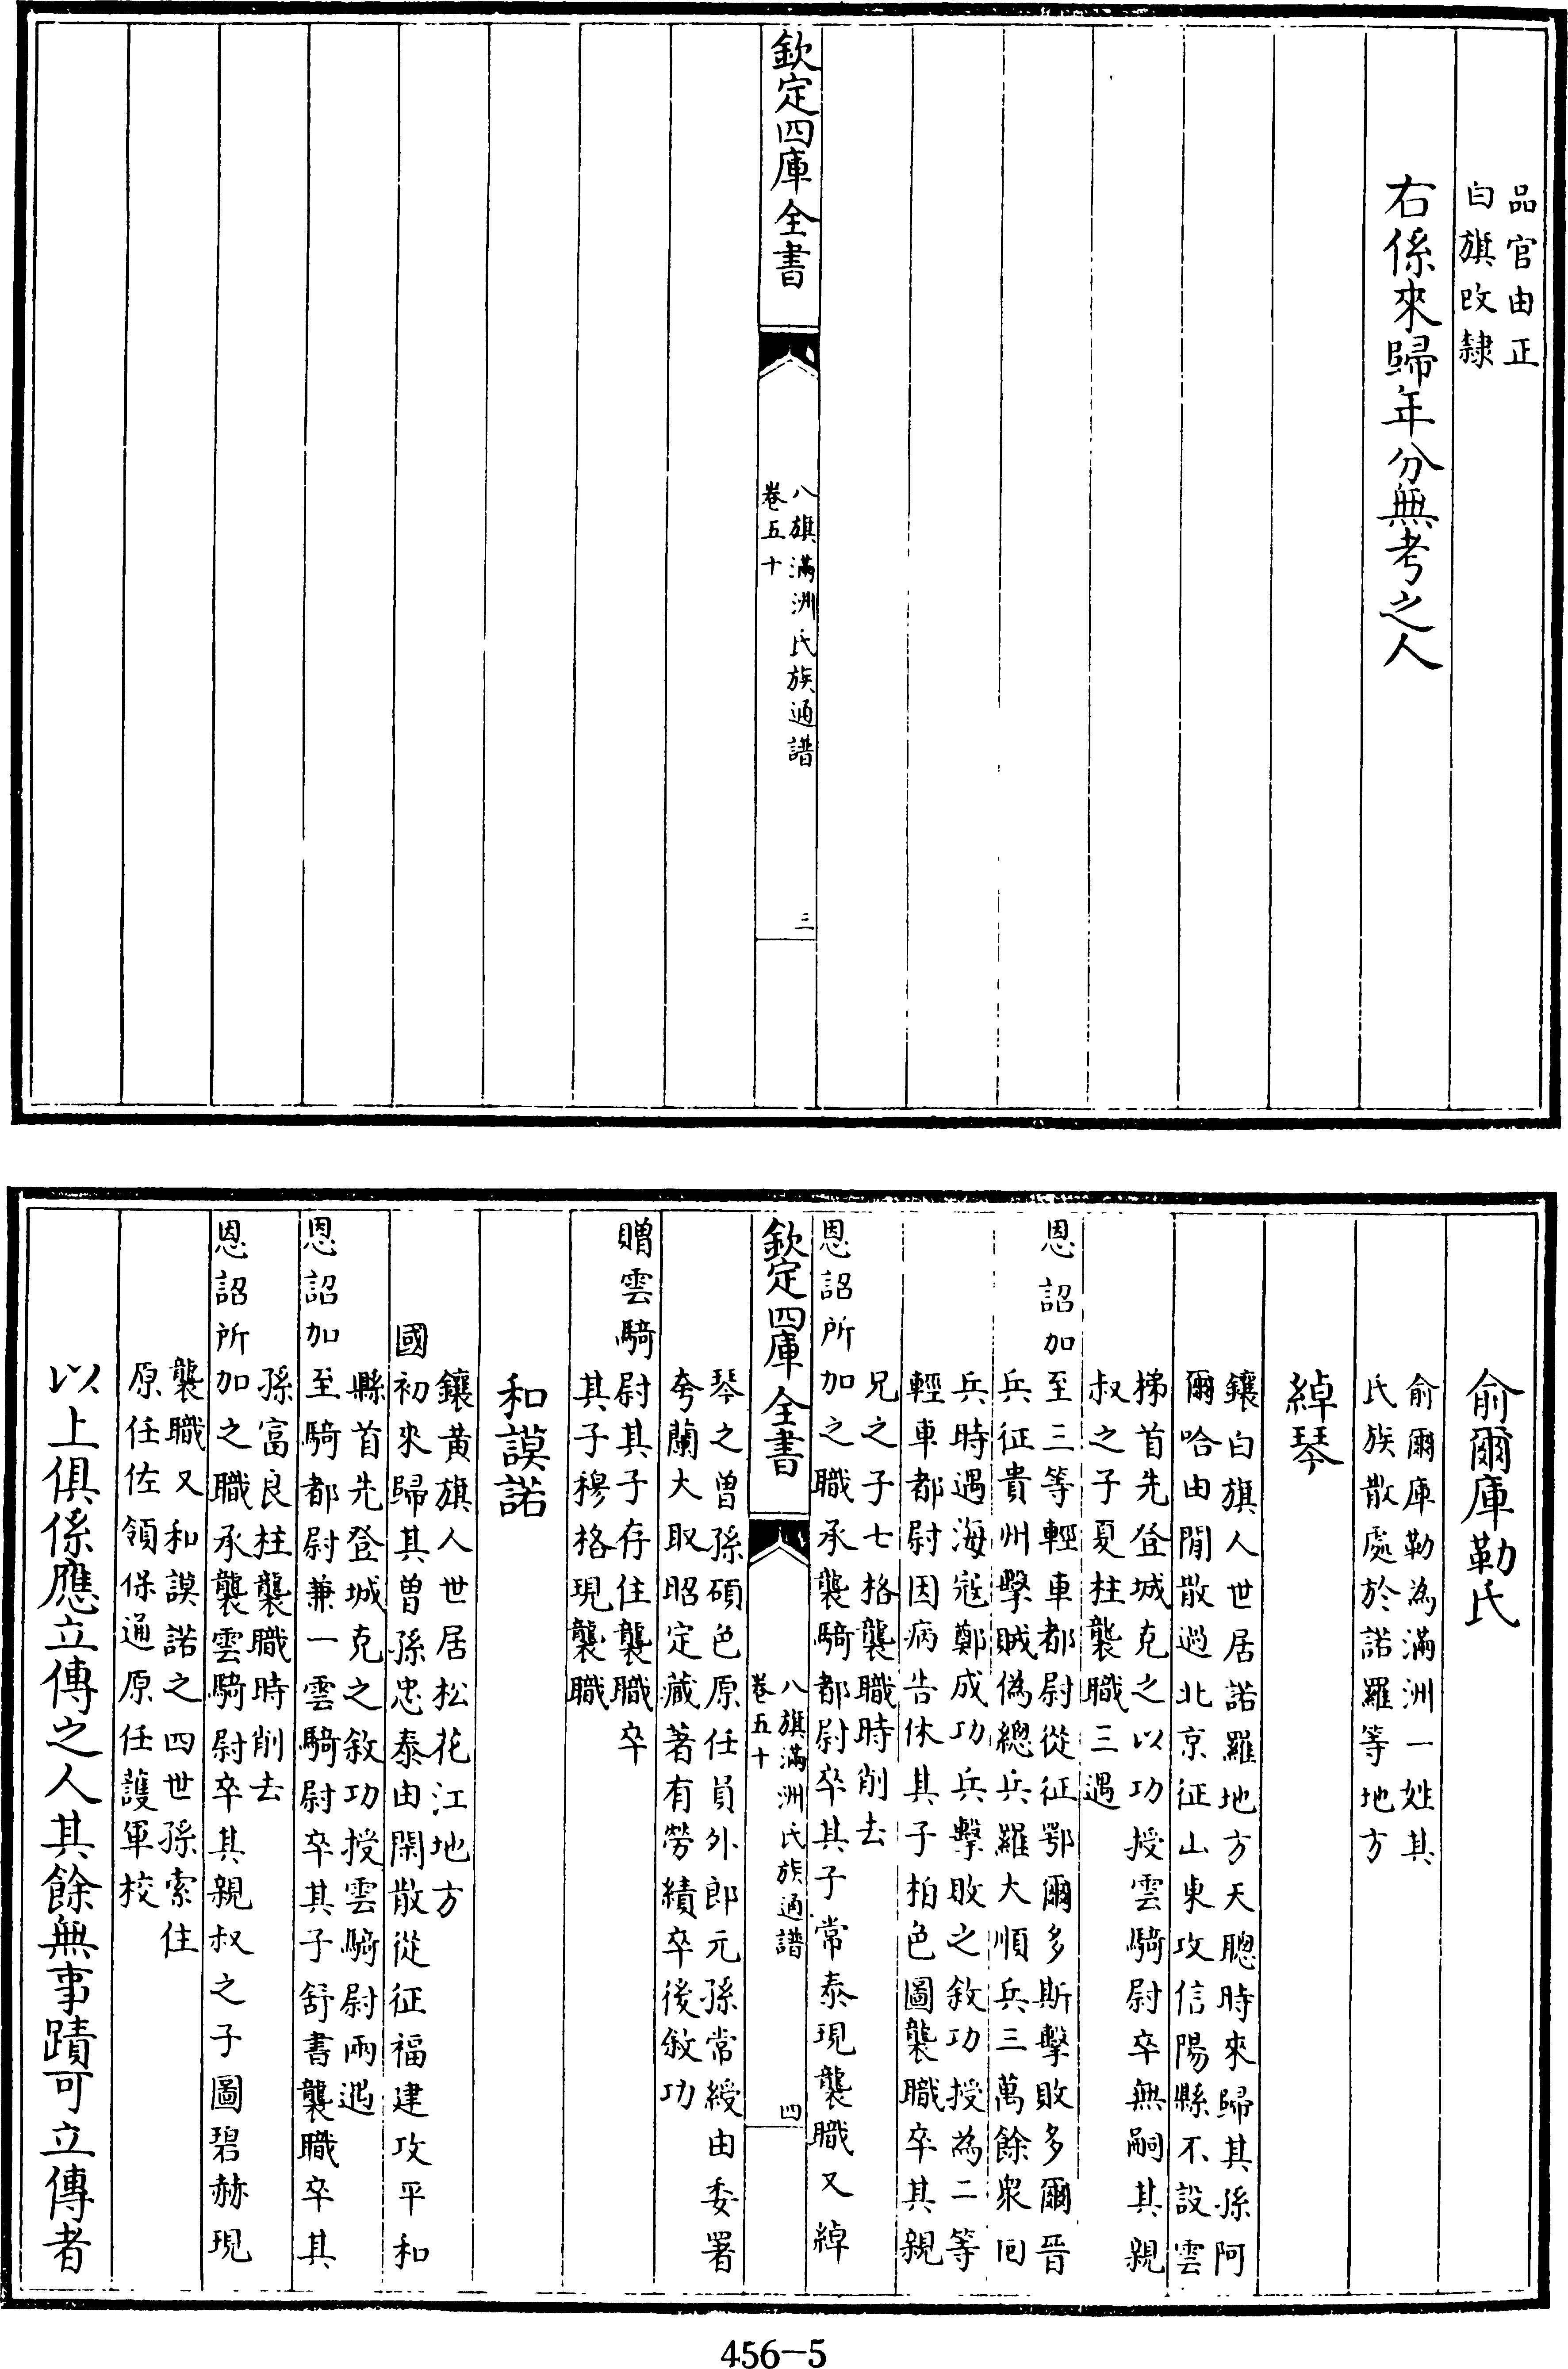 品官由正
白旗改隸
右係來歸年分無考之人
欽定四庫全書
八旗滿洲氏族通譜
卷五十
三
俞爾庫勒氏
俞爾庫勒為滿洲一姓其
氏族散處於諾羅等地方
綽琴
鑲白旗人世居諾羅地方天聰時來歸其孫阿
爾哈由閒散過北京征山東攻信陽縣不設雲
梯首先登城克之以功授雲騎尉卒無嗣其親
叔之子夏柱襲職三遇
恩詔加至三等輕車都尉從征鄂爾多斯擊敗多爾晉
兵征貴州擊賊偽總兵羅大順兵三萬餘衆回
兵時遇海寇鄭成功兵擊敗之敘功授為二等
輕車都尉因病告休其子柏色圖襲職卒其親
兄之子七格襲職時削去
恩詔所加之職承襲騎都尉卒其子常泰現襲職又綽
欽定四庫全書
八旗滿洲氏族通譜
卷五十
四
琴之曾孫碩色原任員外郎元孫常綬由委署
夸蘭大取昭定藏著有勞績卒後敘功
贈雲騎尉其子存住襲職卒
其子穆格現襲職
和謨諾
鑲黃旗人世居松花江地方
國初來歸其曾孫忠泰由閑散從征福建攻平和
縣首先登城克之敘功授雲騎尉兩遇
恩詔加至騎都尉兼一雲騎尉卒其子舒書襲職卒其
孫富良柱襲職時削去
恩詔所加之職承襲雲騎尉卒其親叔之子圖碧赫現
襲職又和謨諾之四世孫索住
原任佐領保通原任護軍校
以上俱係應立傳之人其餘無事蹟可立傳者
456-5